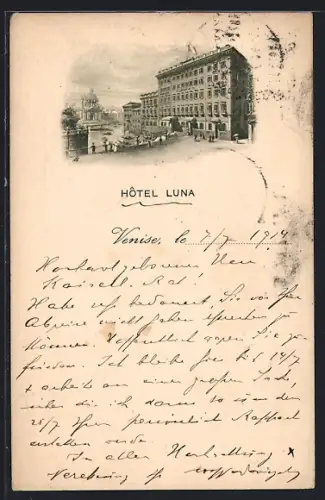 HÔTEL LUNA
Venise, le 7/7 1914
Hochwolgeborener Herr
Kaiserl. Rat!
Habe sehr bedauert, Sie vor Ihrer
Abreise nicht haben sprechen zu
können. Hoffentlich Sie zu-
frieden. Ich bleibe hier bis 14/7
+ arbeite an einer großen Sache,
über die ich dann so um den
25/7 Ihnen persönlich Rapport
erstatten werde.
In aller Hochachtung x
Verehrung Ihr